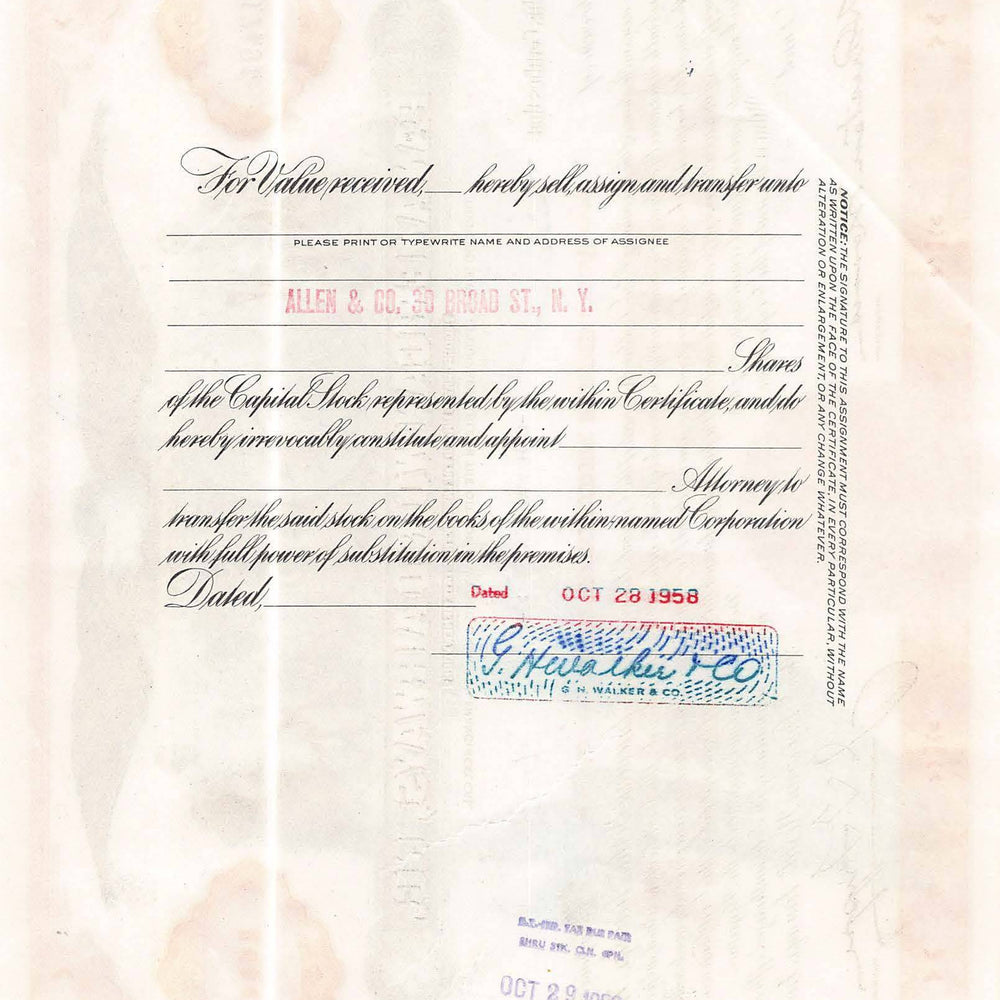 For Value received, ___ hereby sell, assign and transfer unto
PLEASE PRINT OR TYPEWRITE NAME AND ADDRESS OF ASSIGNEE
ALLEN & CO.-30 BROAD ST., N. Y.
Shares
of the Capital Stock represented by the within Certificate, and do
hereby irrevocably constitute and appoint
Attorney to
transfer the said stock on the books of the within-named Corporation
with full power of substitution in the premises.
Dated, Dated OCT 28 1958
G. H. Walker & Co
G. H. WALKER & CO.
NOTICE: THE SIGNATURE TO THIS ASSIGNMENT MUST CORRESPOND WITH THE NAME
AS WRITTEN UPON THE FACE OF THE CERTIFICATE, IN EVERY PARTICULAR, WITHOUT
ALTERATION OR ENLARGEMENT, OR ANY CHANGE WHATEVER.
TAX DUE PAID
THRU STK. CLR.
OCT 29